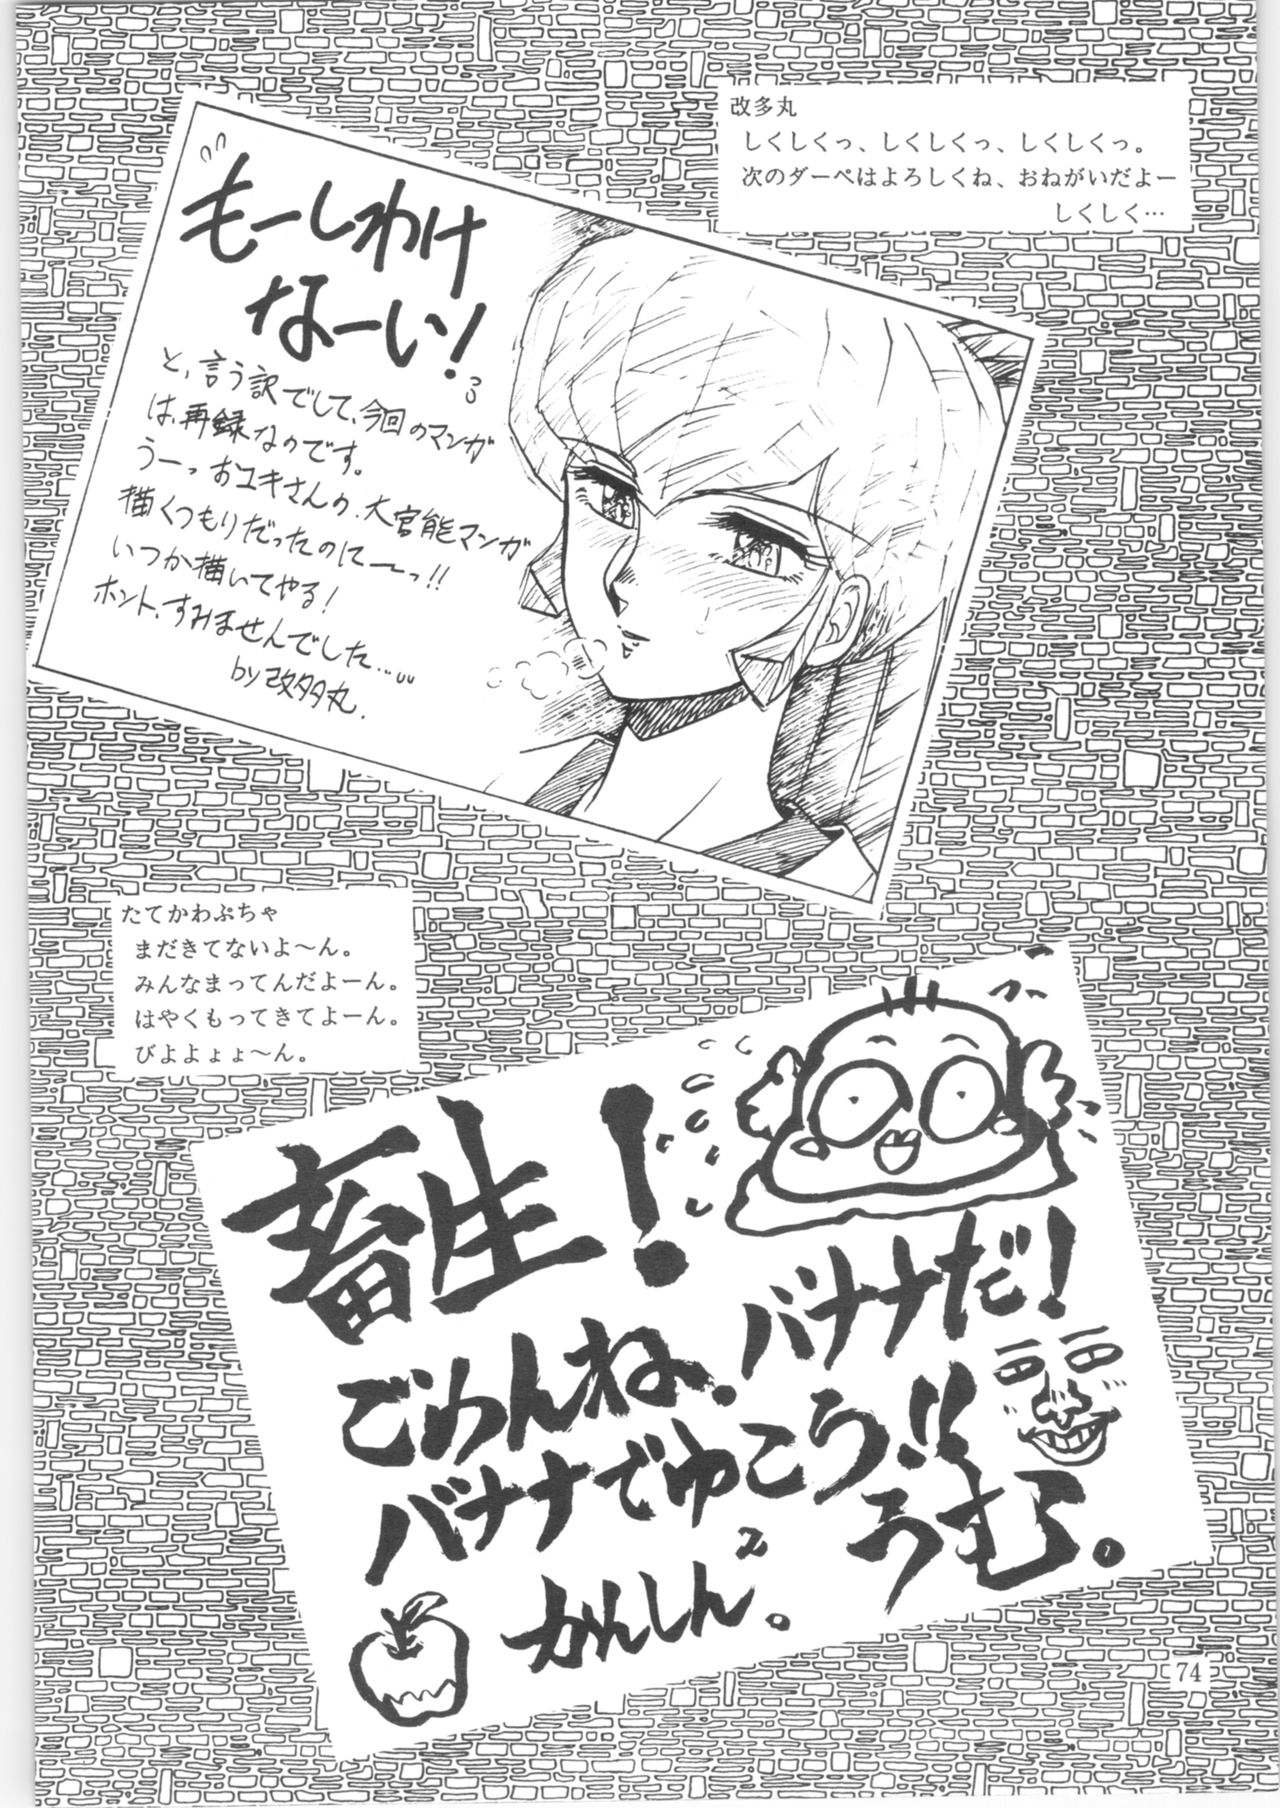 改多丸
しくしくっ、しくしくっ、しくしくっ。
次のダーペはよろしくね、おねがいだよー
しくしく…
もーしわけ
なーい!
と、言う訳でして、今回のマンガ
は、再録なのです。
うーっおユキさんの、大官能マンガ
描くつもりだったのにーーっ!!
いつか描いてやる!
ホント、すみませんでした…
by改多丸.
たてかわぷちゃ
まだきてないよ〜ん。
みんなまってんだよーん。
はやくもってきてよーん。
びよよょょ〜ん。
畜生!
ごめんね、バナナだ!
バナナでゆこう!!
うむ。
かんしん。
74